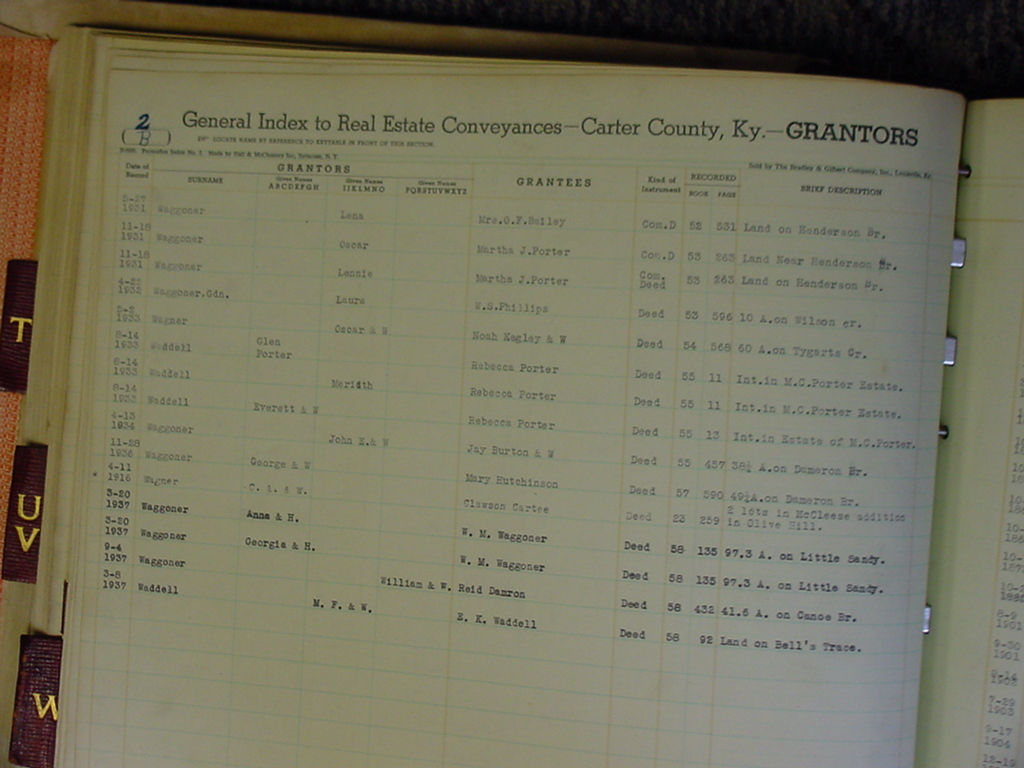 2
B
General Index to Real Estate Conveyances—Carter County, Ky.—GRANTORS
LOCATE NAME BY REFERENCE TO KEYTABLE IN FRONT OF THIS SECTION
Sold by The Bradley & Gilbert Company, Inc., Louisville, Ky.
Date of Record GRANTORS GRANTEES Kind of Instrument RECORDED BRIEF DESCRIPTION
SURNAME Given Names ABCDEFGH Given Names IJKLMNO Given Names PQRSTUVWXYZ BOOK PAGE
5-27 1931 Waggoner Lena Mrs.O.F.Bailey Com.D 52 531 Land on Henderson Br.
11-18 1931 Waggoner Oscar Martha J.Porter Com.D 53 263 Land Near Henderson Br.
11-18 1931 Waggoner Lonnie Martha J.Porter Com. Deed 53 263 Land on Henderson Br.
Waggoner.Gdn. Laura W.S.Phillips Deed 53 596 10 A.on Wilson
1933 Wagner Oscar & W Noah Kegley & W Deed 54 568 60 A.on Tygarts Cr.
8-14 1933 Waddell Glen Porter Rebecca Porter Deed 55 11 Int.in M.C.Porter Estate.
8-14 1933 Waddell Meridth Rebecca Porter Deed 55 11 Int.in M.C.Porter Estate.
8-14 1933 Waddell Everett & W Rebecca Porter Deed 55 13 Int.in Estate of M.C.Porter.
4-13 1934 Waggoner John E.& W Jay Burton & W Deed 55 457 38½ A.on Dameron Br.
11-28 1936 Waggoner George & W Mary Hutchinson Deed 57 590 49¼A.on Dameron Br.
4-11 1916 Wagner C. A. & W. Clawson Cartee Deed 23 259 2 lots in McCleese addition in Olive Hill.
3-20 1937 Waggoner Anna & H. W. M. Waggoner Deed 58 135 97.3 A. on Little Sandy.
3-20 1937 Waggoner Georgia & H. W. M. Waggoner Deed 58 135 97.3 A. on Little Sandy.
9-4 1937 Waggoner William & W. Reid Damron Deed 58 432 41.6 A. on Canoe Br.
3-8 1937 Waddell M. F. & W. E. K. Waddell Deed 58 92 Land on Bell's Trace.
T
U
V
W
8-9
1901
9-30
1901
7-29
1903
9-17
1904
12-19